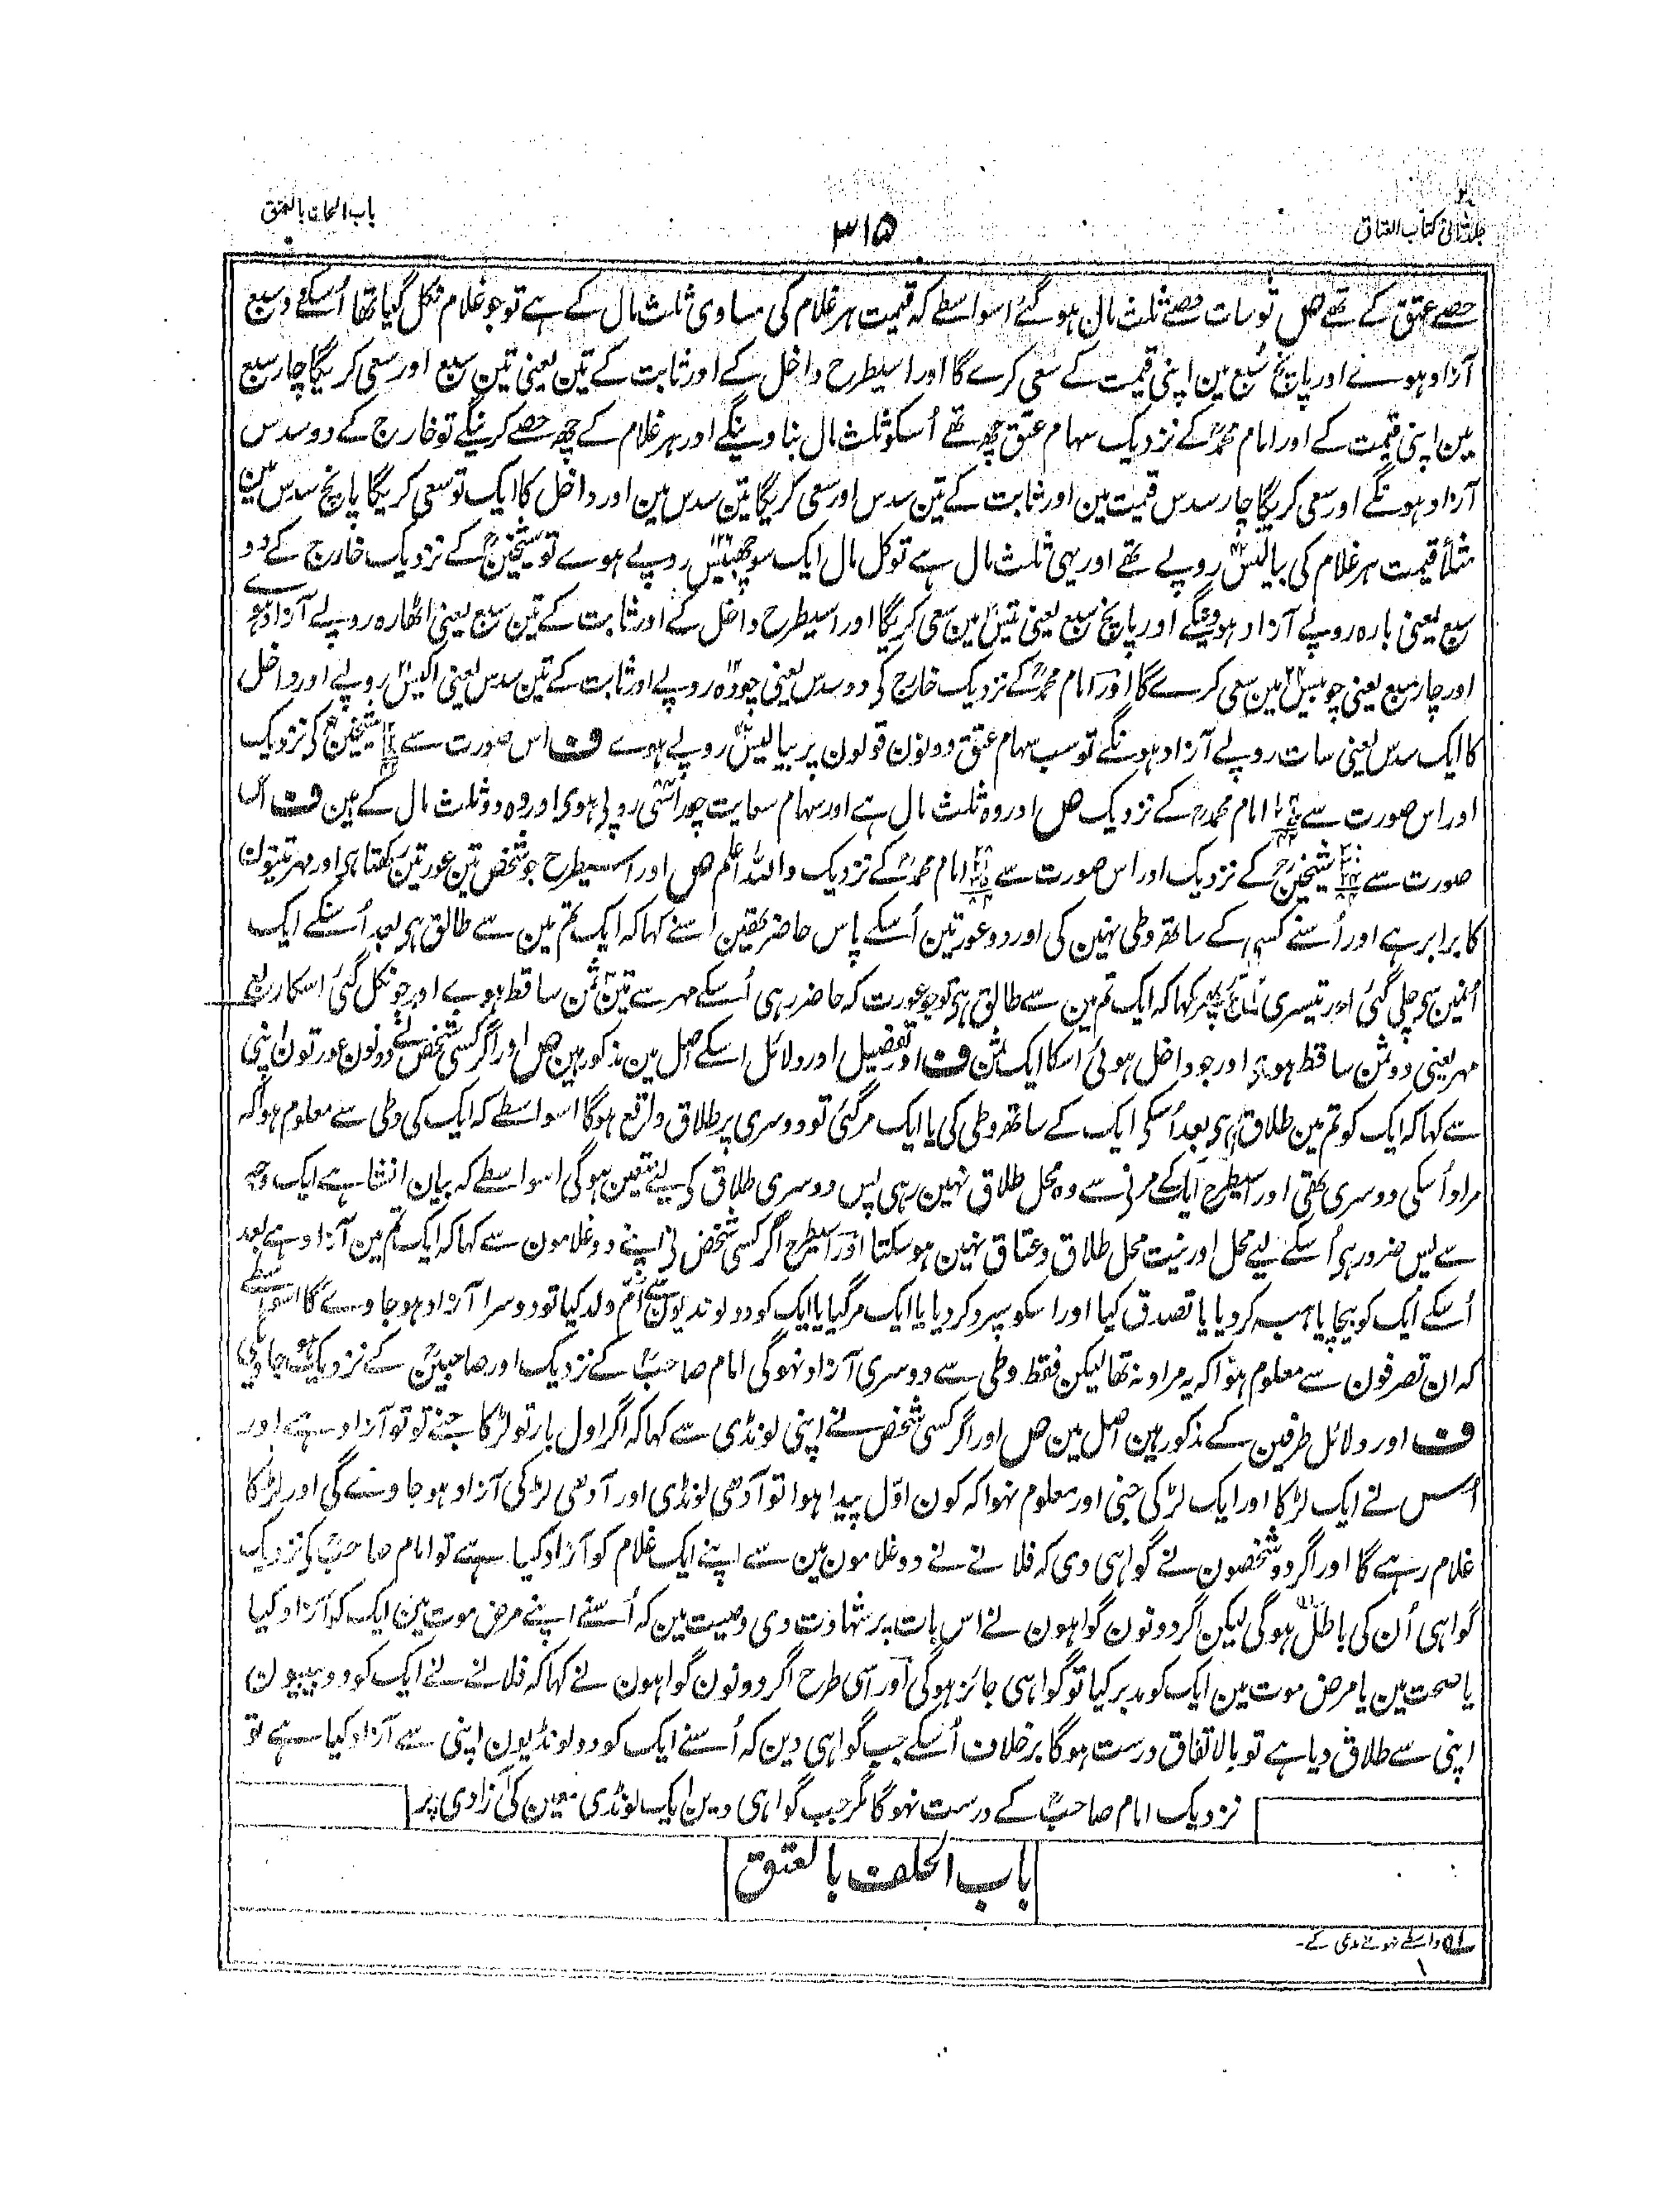 جلد ثانی کتاب العتاق
۳۱۵
باب الحلف بالعتق
حصے عتق کے تھے ص تو سات حصے ثلث مال ہو گئے اسواسطے کہ قیمت ہر غلام کی مساوی ثلث مال کے ہے تو جو غلام نکل گیا تھا اُسکے دو سبع
آزاد ہونے اور پانچ سُبع مین اپنی قیمت کے سعی کرے گا اور اسیطرح داخل کے اور ثابت کے تین یعنی تین سبع اور سعی کریگا چار سبع
مین اپنی قیمت کے اور امام محمدؒ کے نزدیک سہام عتق چھ تھے اُسکو ثلث مال بناوینگے اور ہر غلام کے چھ حصے کرینگے تو خارج کے دو سدس
آزاد ہونگے اور سعی کریگا چار سدس قیمت مین اور ثابت کے تین سدس اور سعی کریگا تین سدس مین اور داخل کا ایک تو سعی کریگا پانچ سدس مین
مثلاً قیمت ہر غلام کی بیالیس۴۲ روپے تھے اور یہی ثلث مال ہے تو کل مال ایک سو چھبیس۱۲۶ روپے ہوے تو شیخینؒ کے نزدیک خارج کے دو
سبع یعنی بارہ روپے آزاد ہوونگے اور پانچ سبع یعنی تیس مین سعی کریگا اور اسیطرح داخل کے اور ثابت کے تین سبع یعنی اٹھارہ روپے آزاد ہوے
اور چار سبع یعنی چوبیس۲۴ مین سعی کرے گا اور امام محمدؒ کے نزدیک خارج کی دو سدس یعنی چودہ روپے اور ثابت کے تین سدس یعنی اکیس روپے اور داخل
کا ایک سدس یعنی سات روپے آزاد ہونگے تو سب سہام عتق دونون قولون پر بیالیس روپے ہوے ف اس صورت سے شیخینؒ کی نزدیک
اور اس صورت سے امام محمدؒ کے نزدیک ص اور وہ ثلث مال ہے اور سہام سعایت چوراسی روپے ہوی اور وہ دو ثلث مال کے ہین ف اس
صورت سے شیخینؒ کے نزدیک اور اس صورت سے امام محمدؒ کے نزدیک واللہ اعلم ص اور اسیطرح جو شخص تین عورتین رکھتا ہی اور مہر تینون
کا برابر ہے اور اُسنے کسی کے ساتھ وطی نہین کی اور دو عورتین اُسکے پاس حاضر تھین اُسنے کہا کہ ایک تم مین سے طالق ہی بعد اُسکے ایک
اُنمین سی چلی گئی اور تیسری آئی پھر کہا کہ ایک تم مین سے طالق ہی تو جو عورت کہ حاضر رہی اُسکے مہر سے تین ثمن ساقط ہوے اور جو نکل گئی اسکا ربع
مہر یعنی دو ثمن ساقط ہوے اور جو داخل ہوئی اسکا ایک ثمن ف اور تفصیل اور دلائل اسکے اصل مین مذکور ہین ص اور اگر کسی شخص نے دونون عورتون اپنی
سے کہا کہ ایک کو تم مین طلاق ہی بعد اُسکی ایک کے ساتھ وطی کی یا ایک مر گئی تو دوسری پر طلاق واقع ہوگا اسواسطے کہ ایک کی وطی سے معلوم ہوا کہ
مراد اُسکی دوسری تھی اور اسیطرح ایک کے مرنے سے وہ محل طلاق نہین رہی پس دوسری طلاق کی لیے متعین ہوگی اسواسطے کہ بیان انشا ہے ایک وجہ
سے پس ضرور ہی اُسکے لیے محل اور میت محل طلاق و عتاق نہین ہو سکتا اور اسیطرح اگر کسی شخص نی اپنے دو غلامون سے کہا کہ ایک تم مین آزاد ہے بعد
اُسکے ایک کو بیچا یا ہبہ کر دیا یا تصدق کیا اور اسکو سپرد کر دیا یا ایک مر گیا یا ایک کو دو لونڈیون مین سے اُم ولد کیا تو دوسرا آزاد ہو جاوے گا اسواسطے
کہ ان تصرفون سے معلوم ہوا کہ یہ مراد نہ تھا لیکن فقط وطی سے دوسری آزاد نہوگی امام صاحبؒ کے نزدیک اور صاحبینؒ کے نزدیک ہو جاویگی
ف اور دلائل طرفین کے مذکور ہین اصل مین ص اور اگر کسی شخص نے اپنی لونڈی سے کہا کہ اگر اول بار تو لڑکا جنے تو تو آزاد ہے اور
اُس نے ایک لڑکا اور ایک لڑکی جنی اور معلوم نہوا کہ کون اوّل پیدا ہوا تو آدھی لونڈی اور آدھی لڑکی آزاد ہو جاوے گی اور لڑکا
غلام رہے گا اور اگر دو شخصون نے گواہی دی کہ فلانے نے دو غلامون مین سے اپنے ایک غلام کو آزاد کیا ہے تو امام صاحبؒ کی نزدیک
گواہی اُن کی باطل ہوگی لیکن اگر دونون گواہون نے اس بات پر شہادت دی وصیت مین کہ اُسنے اپنے مرض موت مین ایک کو آزاد کیا
یا صحت مین یا مرض موت مین ایک کو مدبر کیا تو گواہی جائز ہوگی اور اسی طرح اگر دونون گواہون نے کہا کہ فلانے نے ایک کو دو بیبیون
اپنی سے طلاق دیا ہے تو بالاتفاق درست ہوگا برخلاف اُسکے جب گواہی دین کہ اُسنے ایک کو دو لونڈیون اپنی سے آزاد کیا ہے تو
نزدیک امام صاحبؒ کے درست نہوگا مگر جب گواہی دین ایک لونڈی معین کی آزادی پر
باب الحلف بالعتق
لہ واسطے نہونے مدعی کے۔